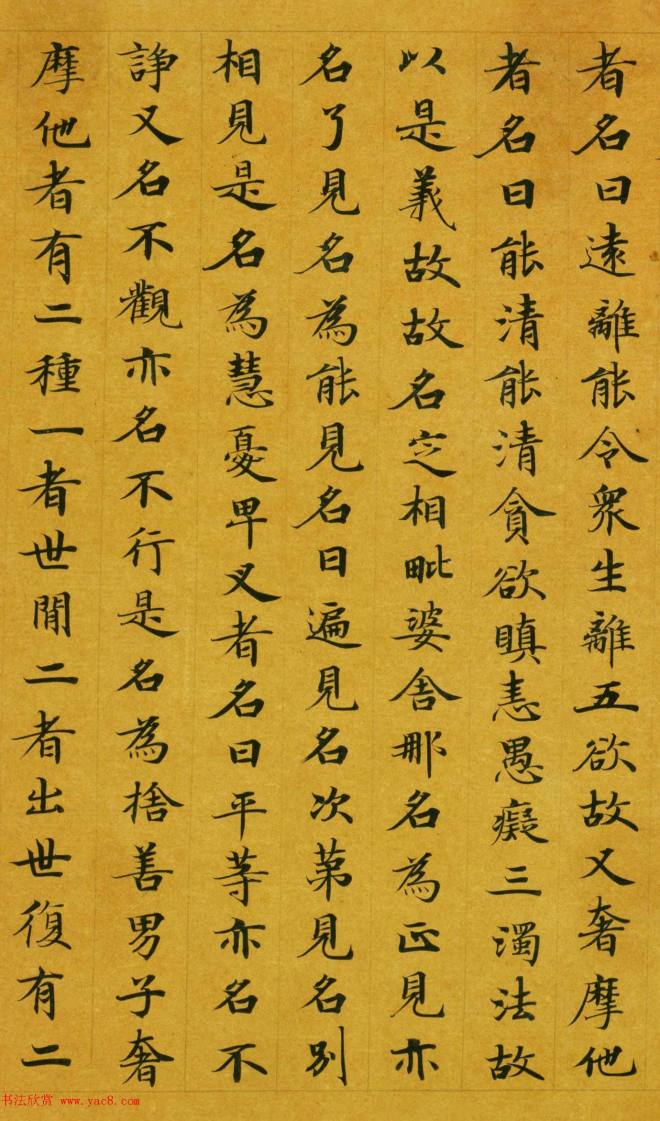 者名曰遠離能令衆生離五欲故又奢摩他
者名曰能清能清貪欲瞋恚愚癡三濁法故
以是義故故名定相毗婆舍那名為正見亦
名了見名為能見名曰遍見名次第見名别
相見是名為慧憂畢叉者名曰平等亦名不
諍又名不觀亦名不行是名為捨善男子奢
摩他者有二種一者世閒二者出世復有二
书法欣赏 www.yac8.com